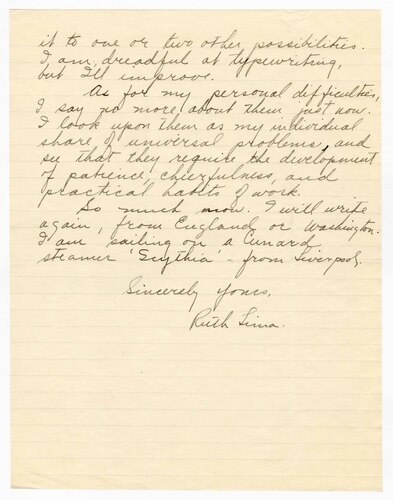 it to one or two other possibilities.
I am dreadful at typewriting,
but I'll improve.
As for my personal difficulties,
I say no more about them just now.
I look upon them as my individual
share of universal problems, and
see that they require the development
of patience, cheerfulness, and
practical habits of work.
So much now. I will write
again, from England or Washington.
I am sailing on a Cunard
steamer 'Scythia' - from Liverpool.
Sincerely yours,
Ruth